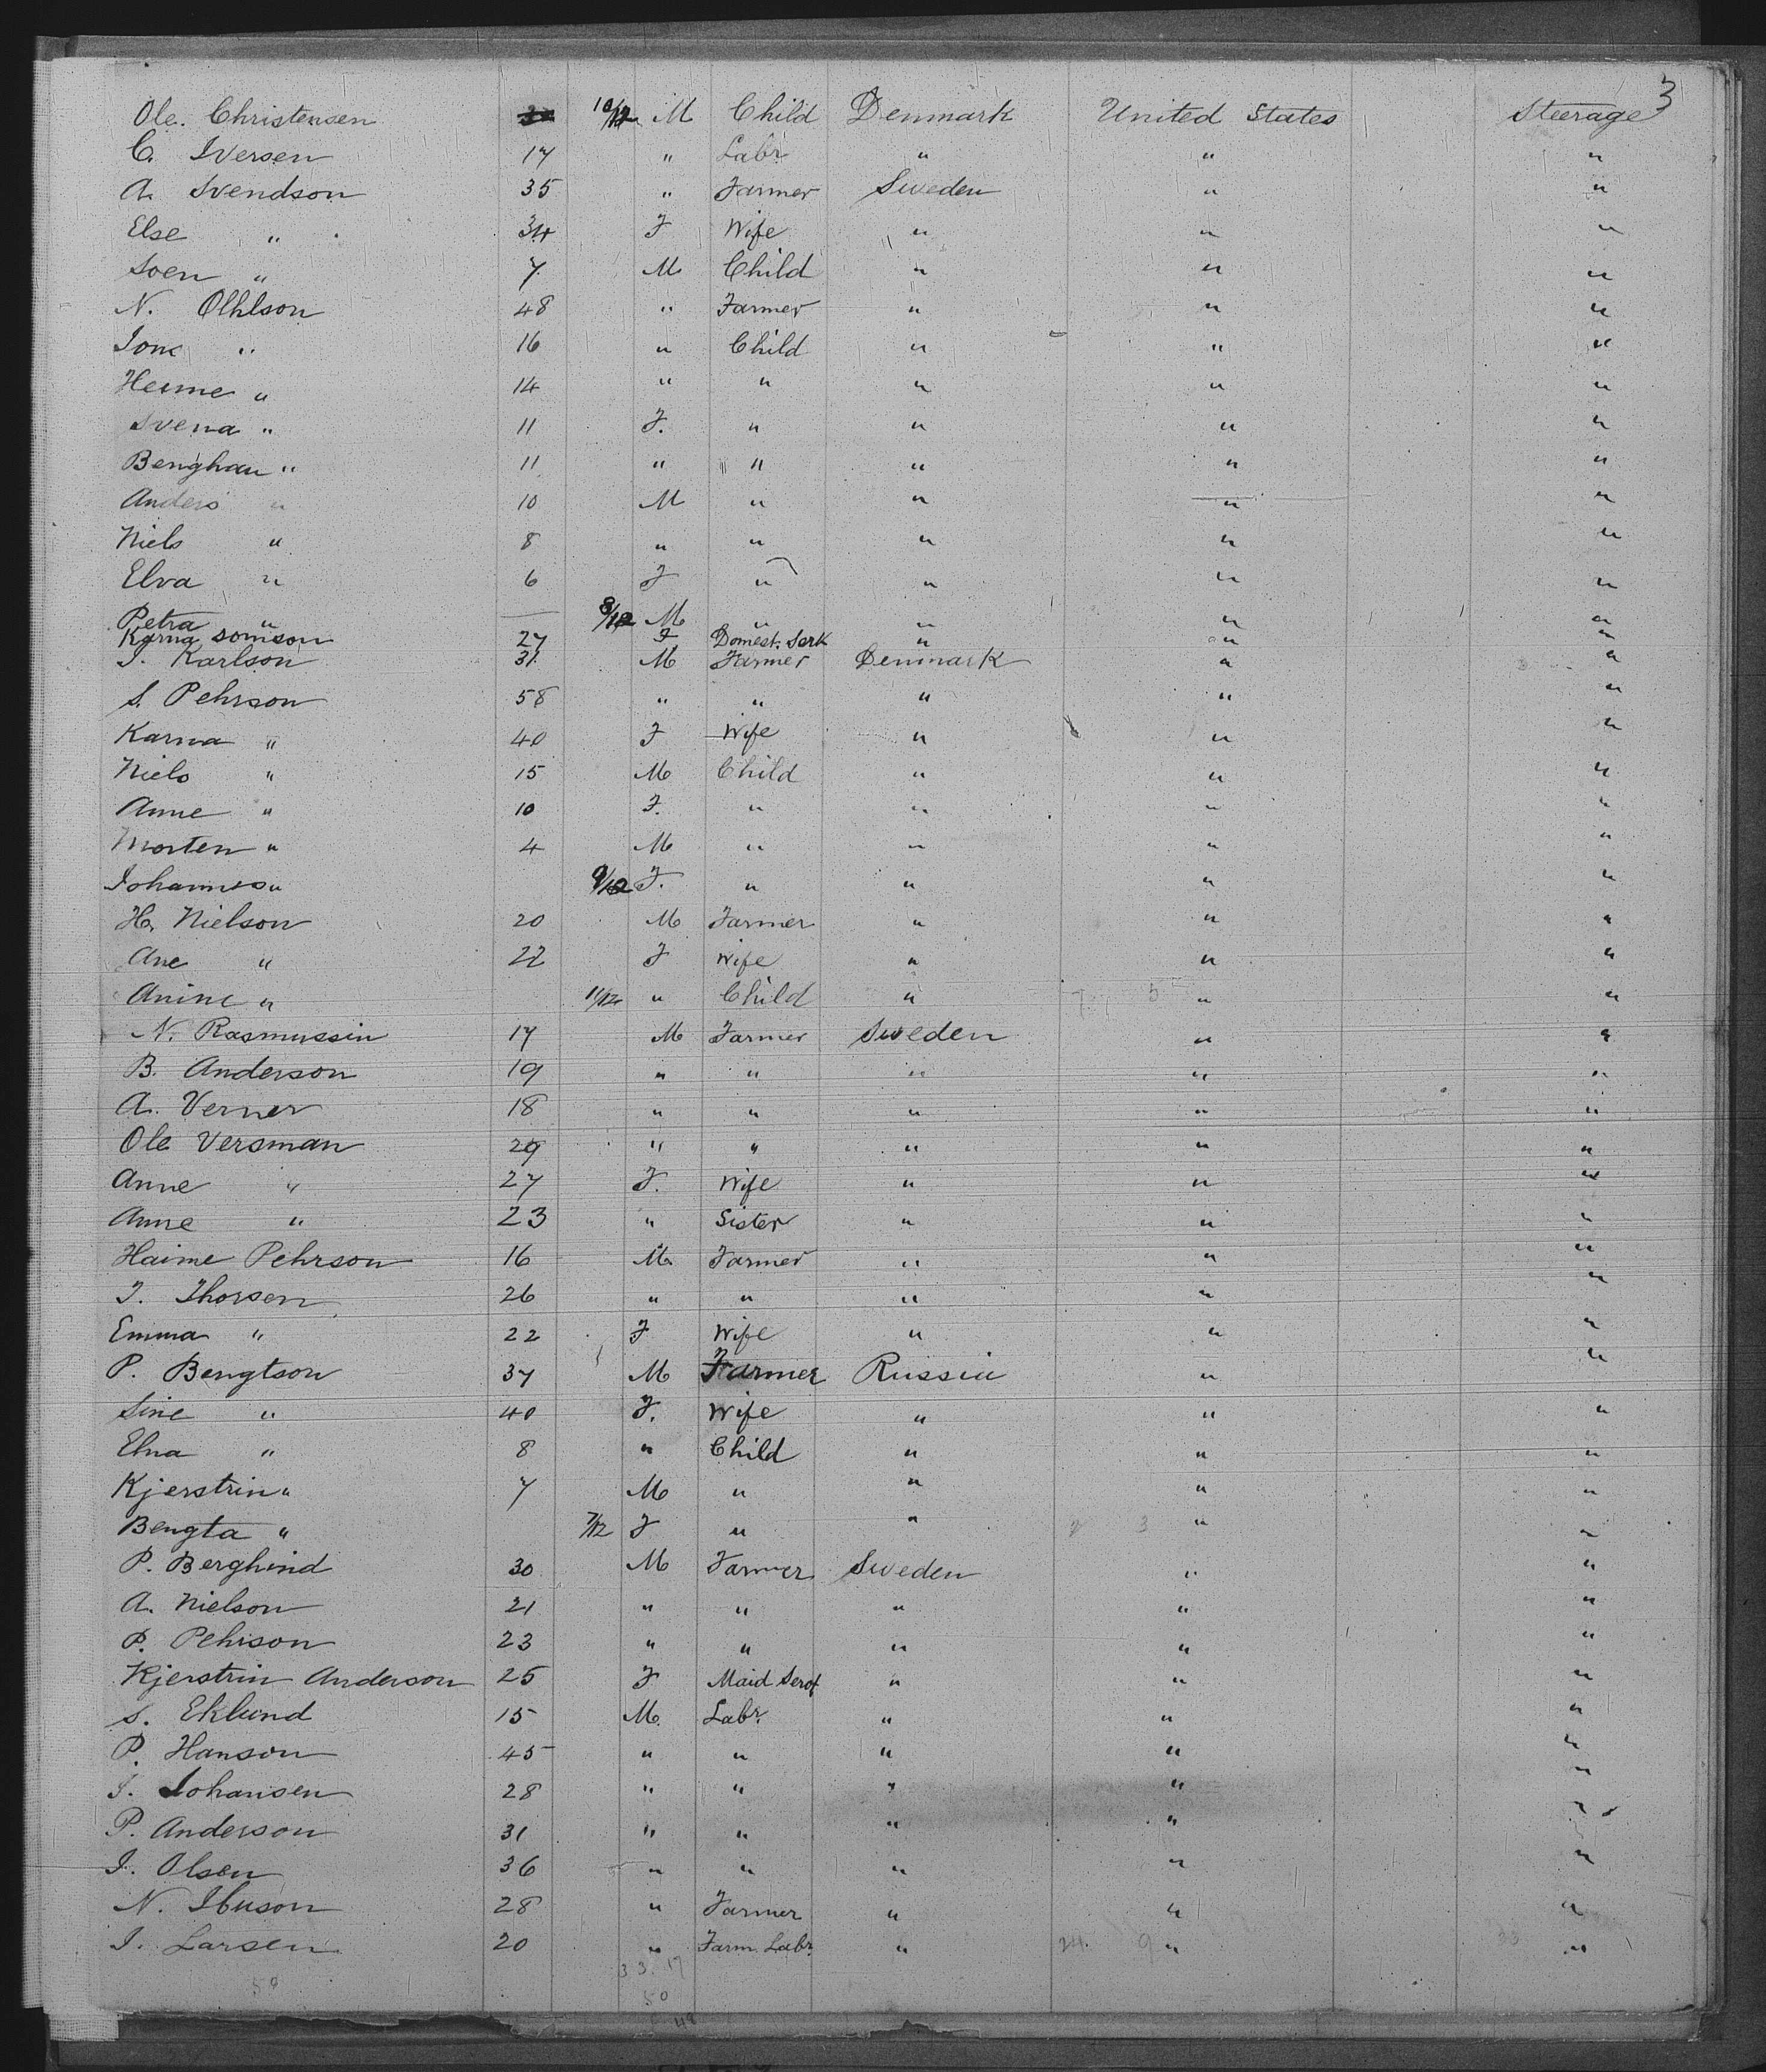 3
Ole. Christensen 10/12 M Child Denmark United States Steerage
C. Iversen 17 " Labr " " "
A. Svendson 35 " Farmer Sweden " "
Else " 34 F Wife " " "
Soen " 7 M Child " " "
N. Olhlson 48 " Farmer " " "
Ione " 16 " Child " " "
Hesme " 14 " " " " "
Svena " 11 F. " " " "
Benghau " 11 " " " " "
Anders " 10 M " " " "
Niels " 8 " " " " "
Elva " 6 F " " " "
Petra " — 8/12 M " " " "
Karna Somson 27 F Domest. Serk " " "
I. Karlson 31. M Farmer Denmark " "
S. Pehrson 58 " " " " "
Karna " 40 F Wife " " "
Niels " 15 M Child " " "
Anne " 10 F. " " " "
Morten " 4 M " " " "
Johannes " 9/12 F. " " " "
H. Nielson 20 M Farmer " " "
Ane " 22 F Wife " " "
Anine " 11/12 " Child " " "
N. Rasmussin 17 M Farmer Sweden " "
B. Anderson 19 " " " " "
A. Verner 18 " " " " "
Ole Versman 29 " " " " "
Anne " 27 F. Wife " " "
Anne " 23 " Sister " " "
Haime Pehrson 16 M Farmer " " "
T. Thorsen 26 " " " " "
Emma " 22 F Wife " " "
P. Bengtson 37 M Farmer Russia " "
Sine " 40 F. Wife " " "
Elna " 8 " Child " " "
Kjerstrin " 7 M " " " "
Bengta " 7/12 F " " " "
P. Berghind 30 M Farmer Sweden " "
A. Nielson 21 " " " " "
P. Pehrson 23 " " " " "
Kjerstrin Anderson 25 F Maid Servt " " "
S. Eklund 15 M. Labr. " " "
P. Hanson 45 " " " " "
I. Johansen 28 " " " " "
P. Anderson 31 " " " " "
I. Olsen 36 " " " " "
N. Ibuson 28 " Farmer " " "
I. Larsen 20 " Farm. Labr. " 24. 9 " "
33. 17
50 50